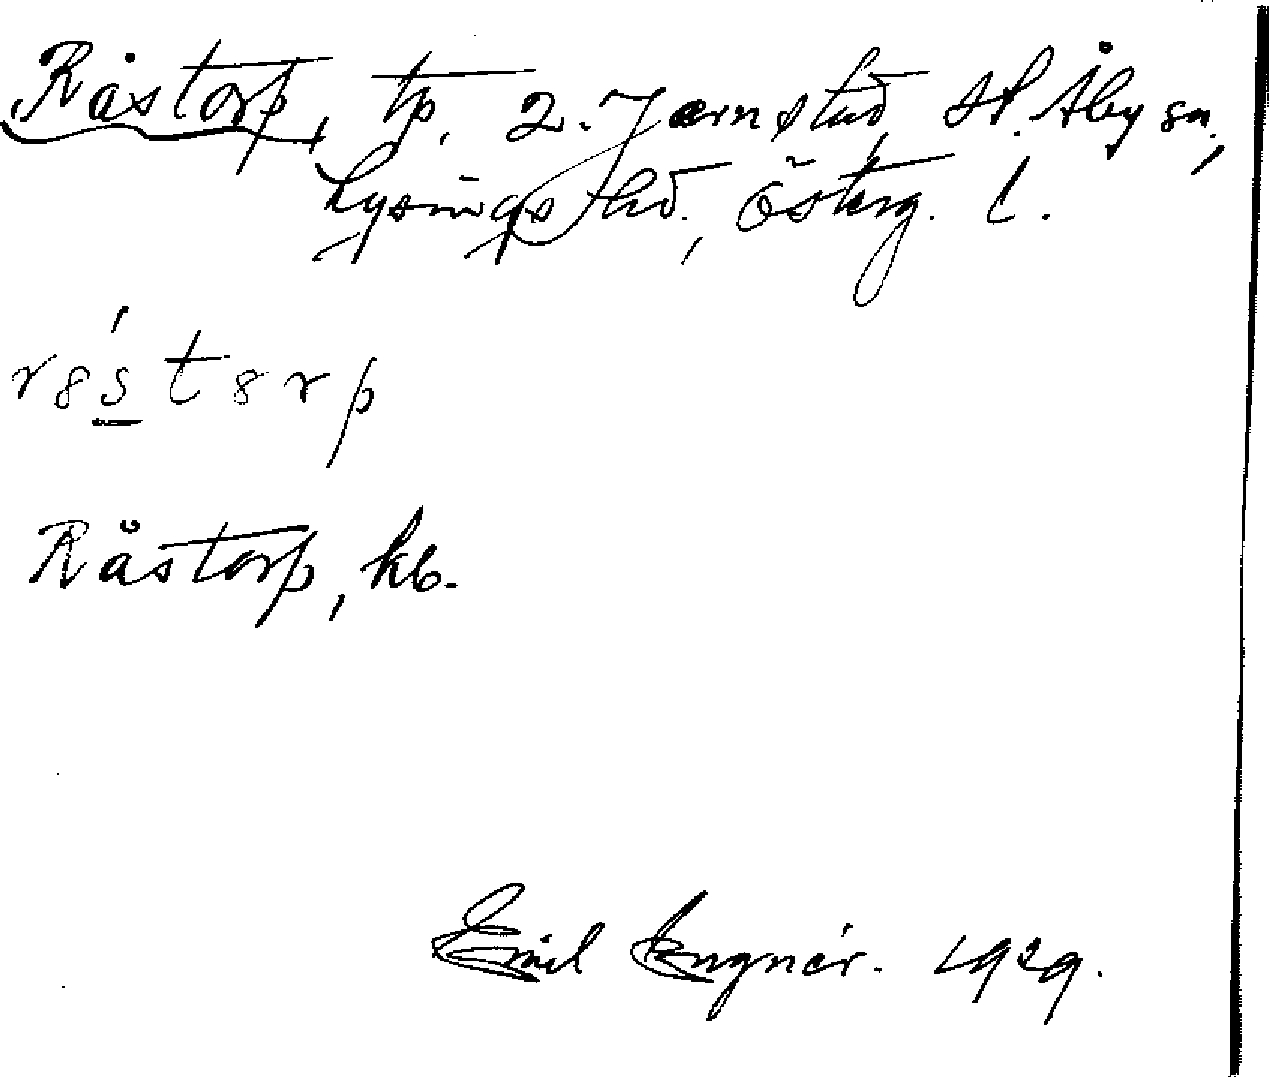 Råstorp, tp. 2. Jærnstad, St. Åby sn.,
Lysings hd., Österg. l.
r8́st8rp
Råstorp, kb.
Emil Lngnér. 1929.